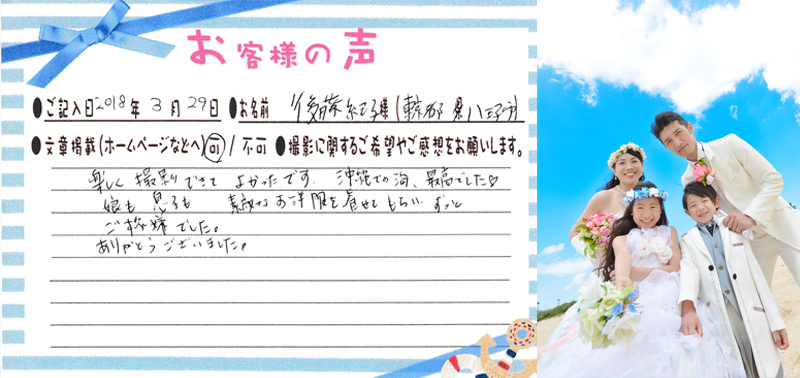 お客様の声
●ご記入日2018年3月29日 ●お名前 後藤紀子様(東京都 県八王子市)
●文章掲載(ホームページなどへ)可/不可 ●撮影に関するご希望やご感想をお願いします。
楽しく撮影できて よかったです。沖縄での海、最高でした♡
娘も 息子も 素敵なお洋服を着せてもらい ずっと
ご機嫌でした。
ありがとうございました。